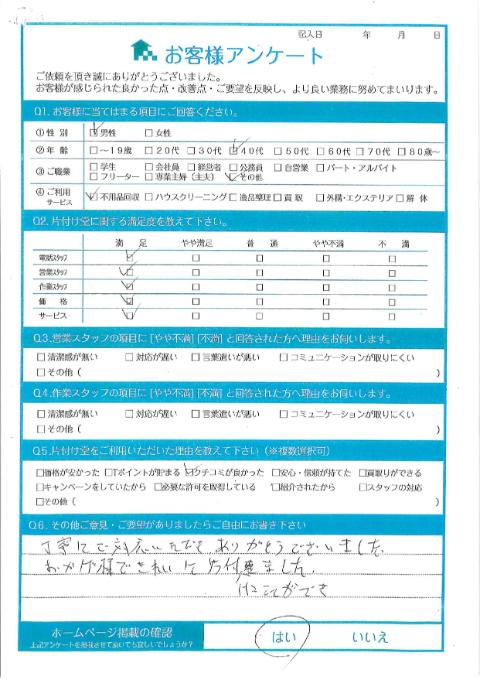 記入日 年 月 日
お客様アンケート
ご依頼を頂き誠にありがとうございました。
お客様が感じられた良かった点・改善点・ご要望を反映し、より良い業務に努めてまいります。
Q1. お客様に当てはまる項目にご回答ください。
①性 別 ☑男性 □女性
②年 齢 □～19歳 □20代 □30代 ☑40代 □50代 □60代 □70代 □80歳～
③ご職業 □学生 □会社員 □経営者 □公務員 □自営業 □パート・アルバイト
□フリーター □専業主婦(主夫) ☑その他
④ご利用サービス ☑不用品回収 □ハウスクリーニング □遺品整理 □買取 □外構・エクステリア □解体
Q2. 片付け堂に関する満足度を教えて下さい。
満足 やや満足 普通 やや不満 不満
電話スタッフ ☑ □ □ □ □
営業スタッフ ☑ □ □ □ □
作業スタッフ ☑ □ □ □ □
価格 ☑ □ □ □ □
サービス ☑ □ □ □ □
Q3.営業スタッフの項目に[やや不満][不満]と回答された方へ理由をお伺いします。
□清潔感が無い □対応が遅い □言葉遣いが悪い □コミュニケーションが取りにくい
□その他( )
Q4.作業スタッフの項目に[やや不満][不満]と回答された方へ理由をお伺いします。
□清潔感が無い □対応が遅い □言葉遣いが悪い □コミュニケーションが取りにくい
□その他( )
Q5.片付け堂をご利用いただいた理由を教えて下さい(※複数選択可)
□価格が安かった □Tポイントが貯まる ☑クチコミが良かった □安心・信頼が持てた □買取りができる
□キャンペーンをしていたから □必要な許可を取得している □紹介されたから □スタッフの対応
□その他( )
Q6. その他ご意見・ご要望がありましたらご自由にお書き下さい
丁寧にご対応いただき、ありがとうございました。
おかげ様できれいに片付
ました。
けることができ
ホームページ掲載の確認 はい いいえ
上記アンケートを掲載させて頂いても宜しいでしょうか?